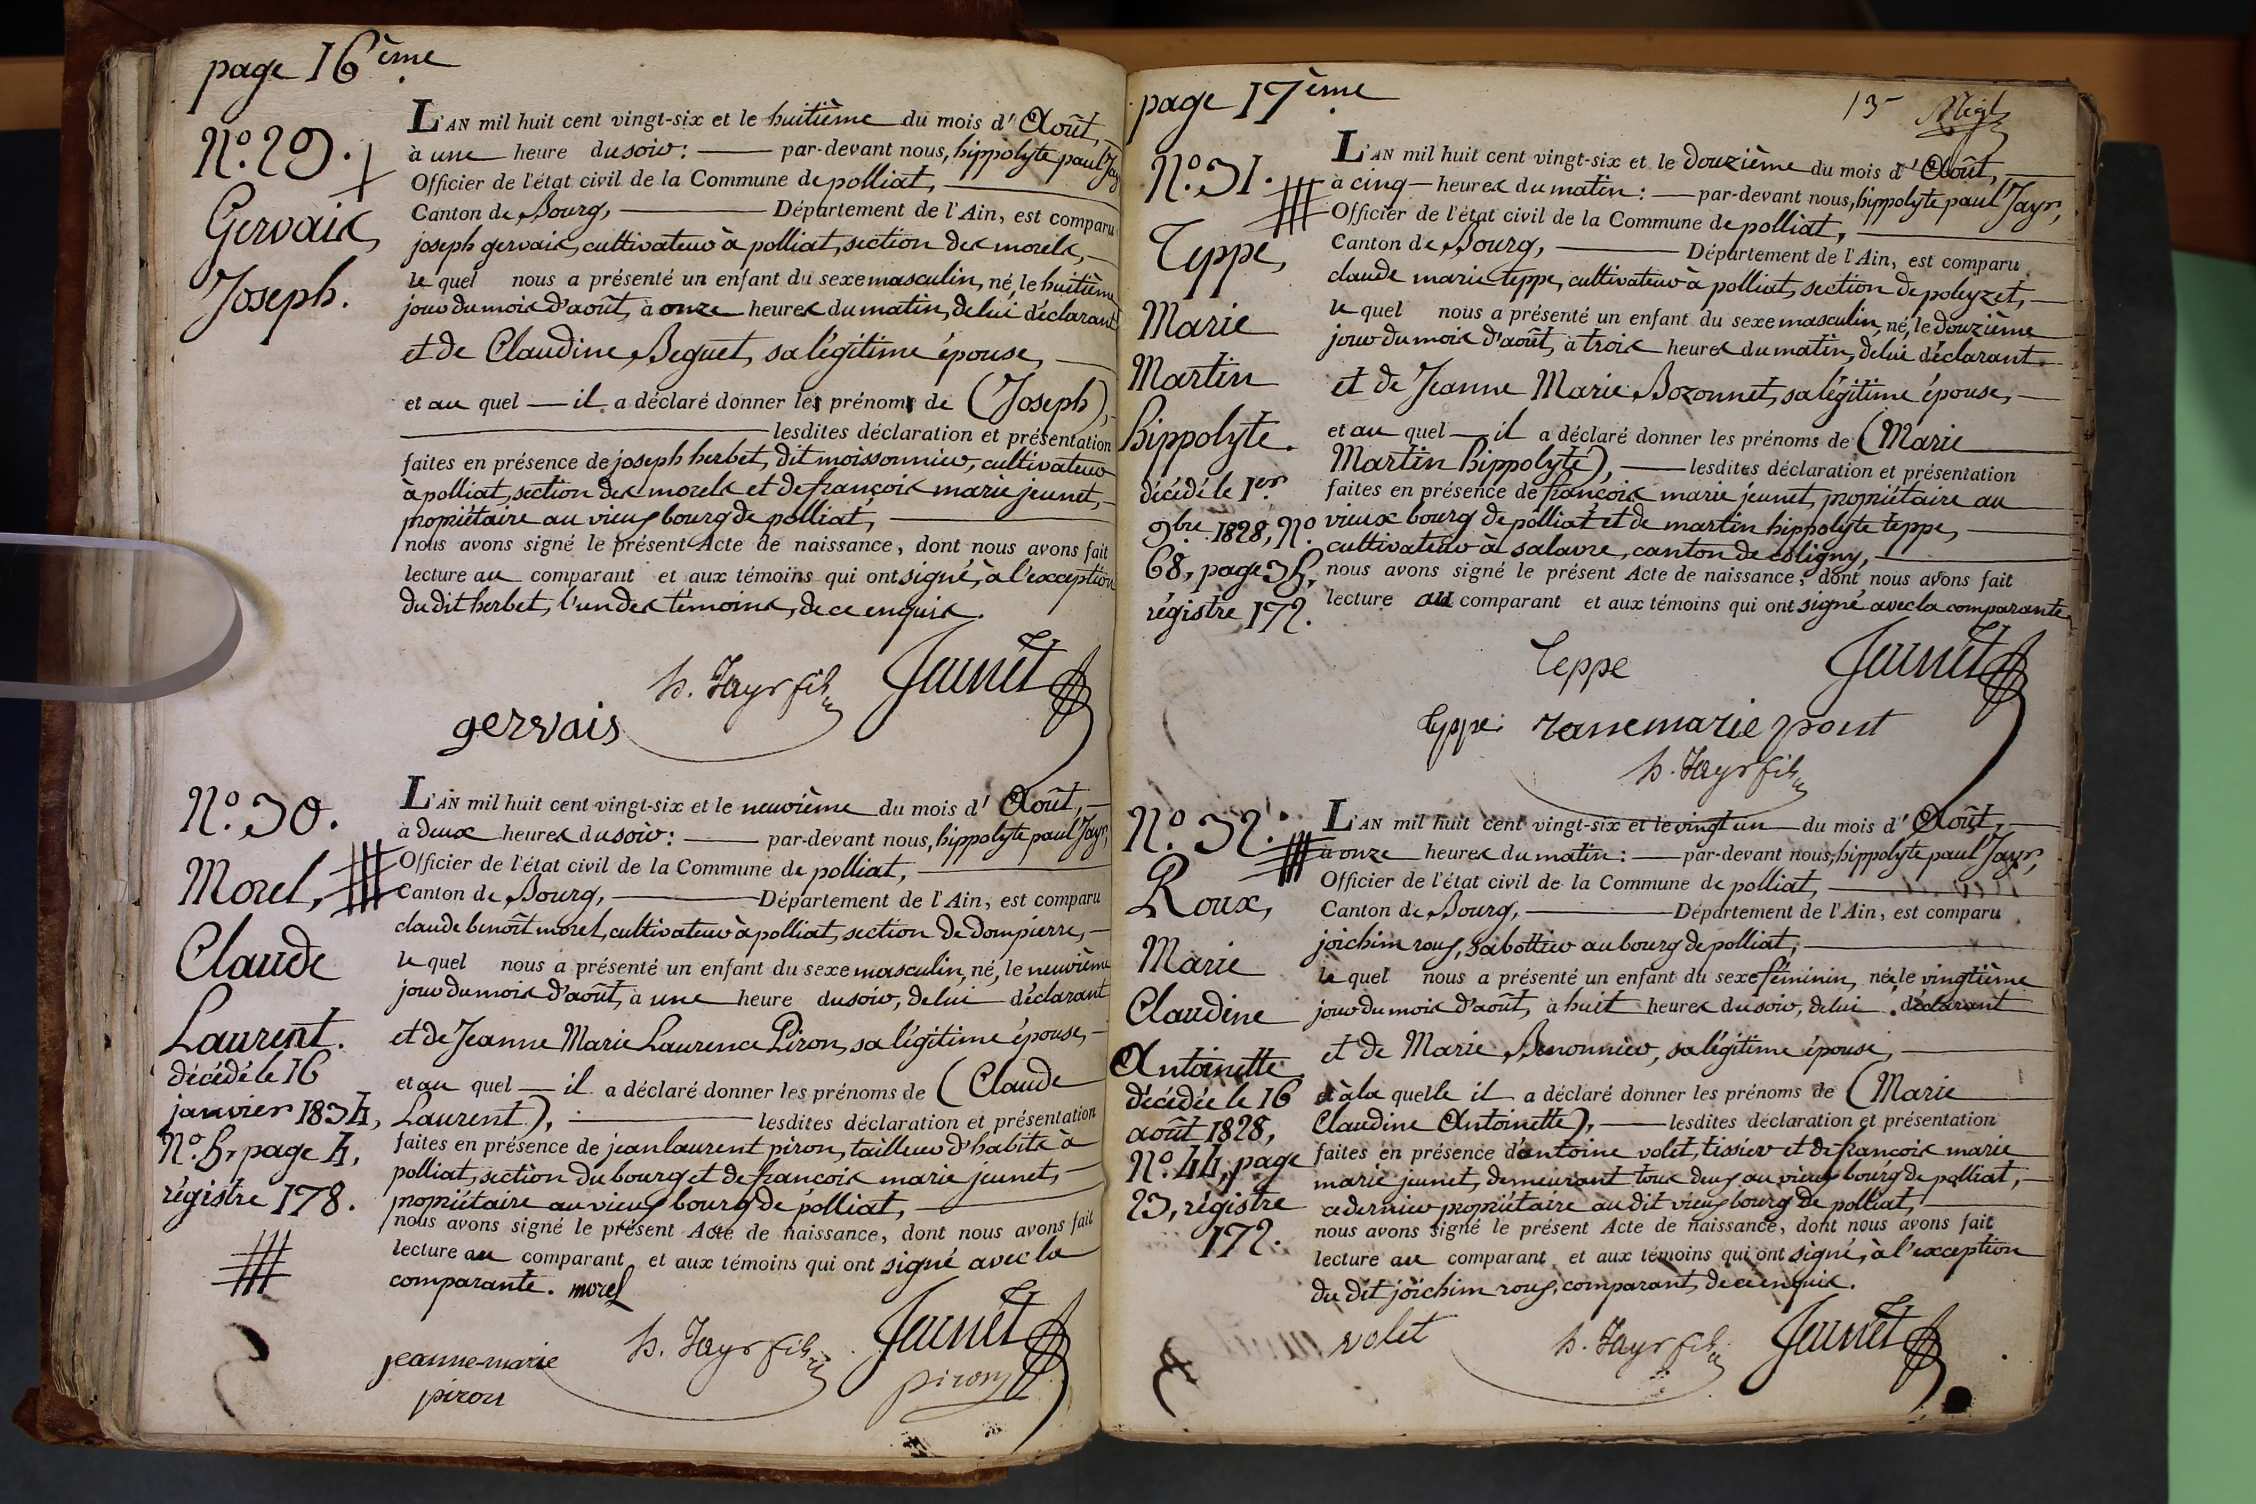 page 16ème
N.o 29.
Gervais,
Joseph.
L'AN mil huit cent vingt-six et le huitième du mois d'Août,
à une heure du soir : par-devant nous, hippolyte paul Jayr
Officier de l'état civil de la Commune de polliat,
Canton de Bourg, Département de l'Ain, est comparu
joseph gervais, cultivateur à polliat, section des morels,
le quel nous a présenté un enfant du sexe masculin, né, le huitième
jour du mois d'août, à onze heures du matin, de lui déclarant
et de Claudine Beguet, sa légitime épouse,
et au quel il a déclaré donner les prénoms de (Joseph),
lesdites déclaration et présentation
faites en présence de joseph herbet, dit moissonnier, cultivateur
à polliat, section des morels et de françois marie jeunet,
propriétaire au vieux bourg de polliat,
nous avons signé le présent Acte de naissance, dont nous avons fait
lecture au comparant et aux témoins qui ont signé, à l'exception
du dit herbet, l'un des témoins, de ce enquis.
h. Jayr fils Jeunet
gervais
N.o 30.
Morel,
Claude
Laurent.
décédé le 16
janvier 1834,
N.o 5, page 4,
régistre 178.
L'AN mil huit cent vingt-six et le neuvième du mois d'Août,
à deux heures du soir : par-devant nous, hippolyte paul Jayr,
Officier de l'état civil de la Commune de polliat,
Canton de Bourg, Département de l'Ain, est comparu
claude benoît morel, cultivateur à polliat, section de dompierre,
le quel nous a présenté un enfant du sexe masculin, né, le neuvième
jour du mois d'août, à une heure du soir, de lui déclarant
et de Jeanne Marie Laurence Piron, sa légitime épouse,
et au quel il a déclaré donner les prénoms de (Claude
Laurent), lesdites déclaration et présentation
faites en présence de jean laurent piron, tailleur d'habits à
polliat, section du bourg et de françois marie jeunet,
propriétaire au vieux bourg de polliat,
nous avons signé le présent Acte de naissance, dont nous avons fait
lecture au comparant et aux témoins qui ont signé avec la
comparante. morel
h. Jayr fils Jeunet
jeanne-marie piron
piron
page 17ème
13
N.o 31.
Teppe,
Marie
Martin
Hippolyte.
décédé le 1er.
9bre. 1828, N.o
68, page 35,
régistre 172.
L'AN mil huit cent vingt-six et le douzième du mois d'Août,
à cinq heures du matin : par-devant nous, hippolyte paul Jayr,
Officier de l'état civil de la Commune de polliat,
Canton de Bourg, Département de l'Ain, est comparu
claude marie teppe, cultivateur à polliat, section de poleyzet,
le quel nous a présenté un enfant du sexe masculin, né, le douzième
jour du mois d'août, à trois heures du matin, de lui déclarant
et de Jeanne Marie Bozonnet, sa légitime épouse,
et au quel il a déclaré donner les prénoms de (Marie
Martin Hippolyte), lesdites déclaration et présentation
faites en présence de françois marie jeunet, propriétaire au
vieux bourg de polliat et de martin hippolyte teppe,
cultivateur à salavre, canton de coligny,
nous avons signé le présent Acte de naissance, dont nous avons fait
lecture au comparant et aux témoins qui ont signé avec la comparante
Teppe Jeunet
teppe
h. Jayr fils
N.o 32.
Roux,
Marie
Claudine
Antoinette
décédée le 16
août 1828,
N.o 44, page
23, régistre
172.
L'AN mil huit cent vingt-six et le vingt un du mois d'Août,
à onze heures du matin : par-devant nous, hippolyte paul Jayr,
Officier de l'état civil de la Commune de polliat,
Canton de Bourg, Département de l'Ain, est comparu
joichim roux, sabottier au bourg de polliat,
le quel nous a présenté un enfant du sexe féminin, née, le vingtième
jour du mois d'août, à huit heures du soir, de lui déclarant
et de Marie Benonnier, sa légitime épouse,
et à la quelle il a déclaré donner les prénoms de (Marie
Claudine Antoinette), lesdites déclaration et présentation
faites en présence d'antoine volet, tissier et de françois marie
marie jeunet, demeurant tous deux au vieux bourg de polliat,
ce dernier propriétaire au dit vieux bourg de polliat,
nous avons signé le présent Acte de naissance, dont nous avons fait
lecture au comparant et aux témoins qui ont signé, à l'exception
du dit joichim roux, comparant, de ce enquis.
volet h. Jayr fils Jeunet